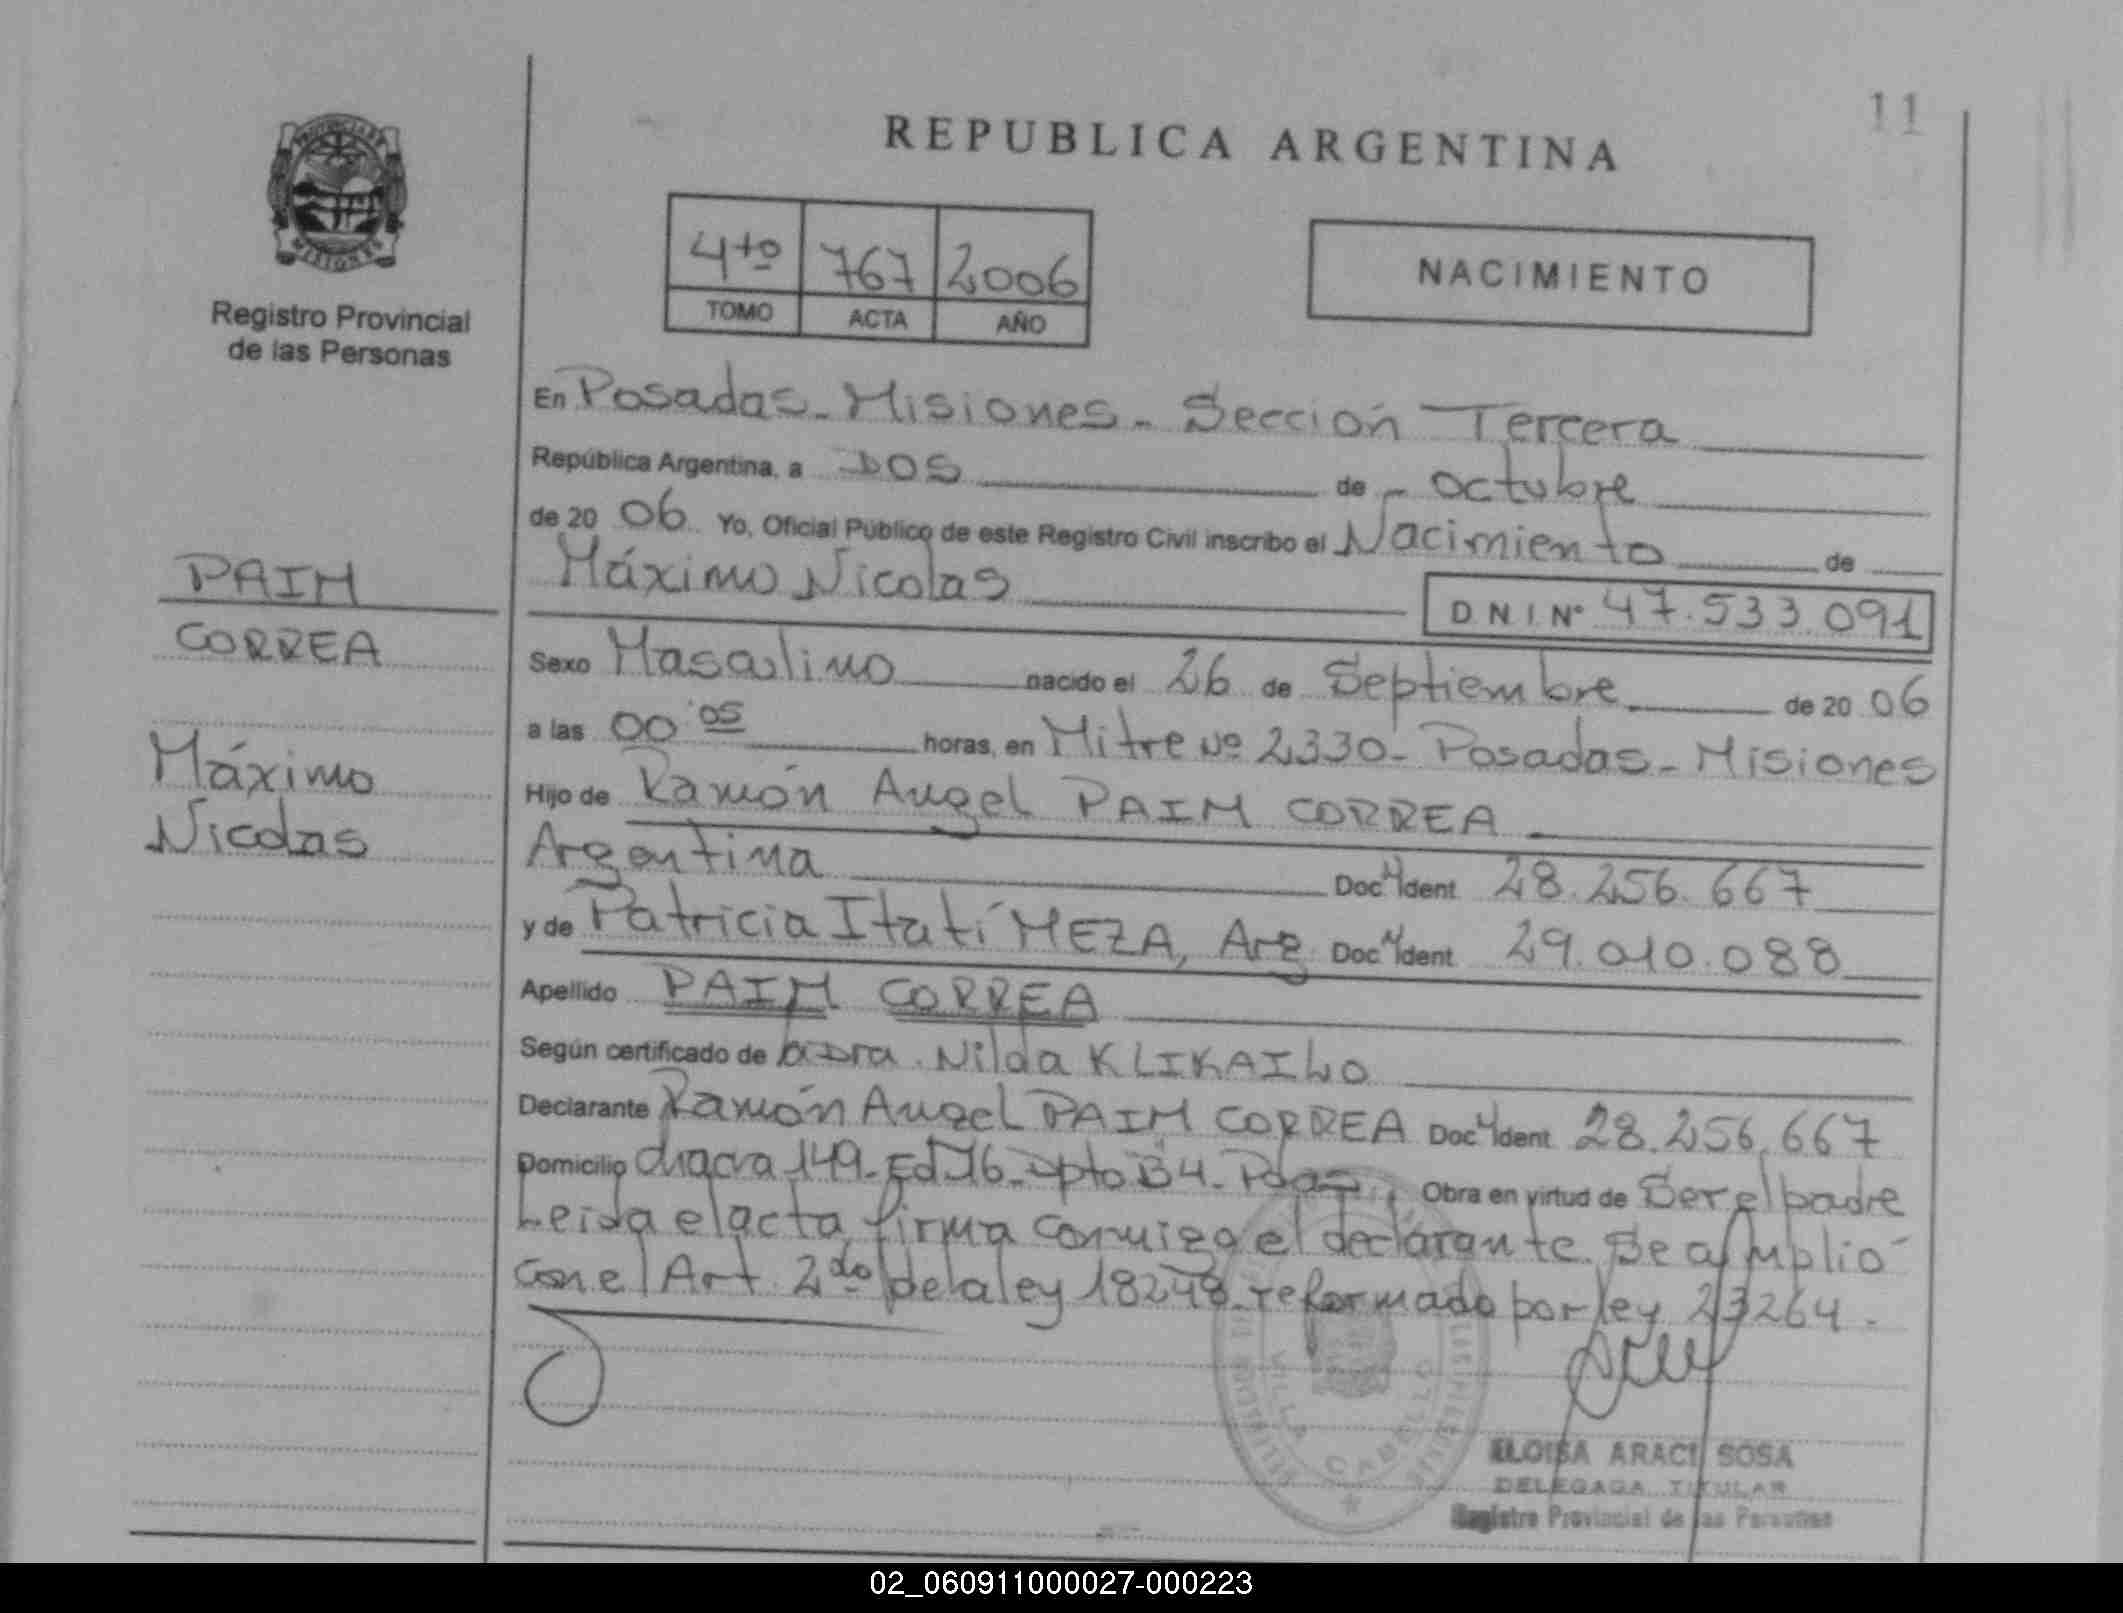 11
PROVINCIA DE
MISIONES
Registro Provincial
de las Personas
REPUBLICA ARGENTINA
4to 767 2006
TOMO ACTA AÑO
NACIMIENTO
En Posadas - Misiones - Sección Tercera
República Argentina, a DOS de octubre
de 20 06 Yo, Oficial Público de este Registro Civil inscribo el Nacimiento de
Máximo Nicolas
D N I. Nº 47.533.091
PAIM
CORREA
Máximo
Nicolas
Sexo Masculino nacido el 26 de Septiembre de 20 06
a las 00 05 horas, en Mitre Nº 2330 - Posadas - Misiones
Hijo de Ramón Angel PAIM CORREA
Argentina Doc N Ident 28.256.667
y de Patricia Itatí MEZA, Arg Doc N Ident 29.010.088
Apellido PAIM CORREA
Según certificado de la Dra. Nilda KLIKAILO
Declarante Ramón Angel PAIM CORREA Doc N Ident 28.256.667
Domicilio chacra 149 - Ed 16 - Dpto B4 - Pdas, Obra en virtud de Ser el padre
Leida el acta, firma conmigo el declarante. Se amplió
con el Art. 2do de la ley 18248 reformado por ley 23264.
VILLA CABELLO
ELOISA ARACI SOSA
DELEGADA TITULAR
Registro Provincial de las Personas
02_060911000027-000223